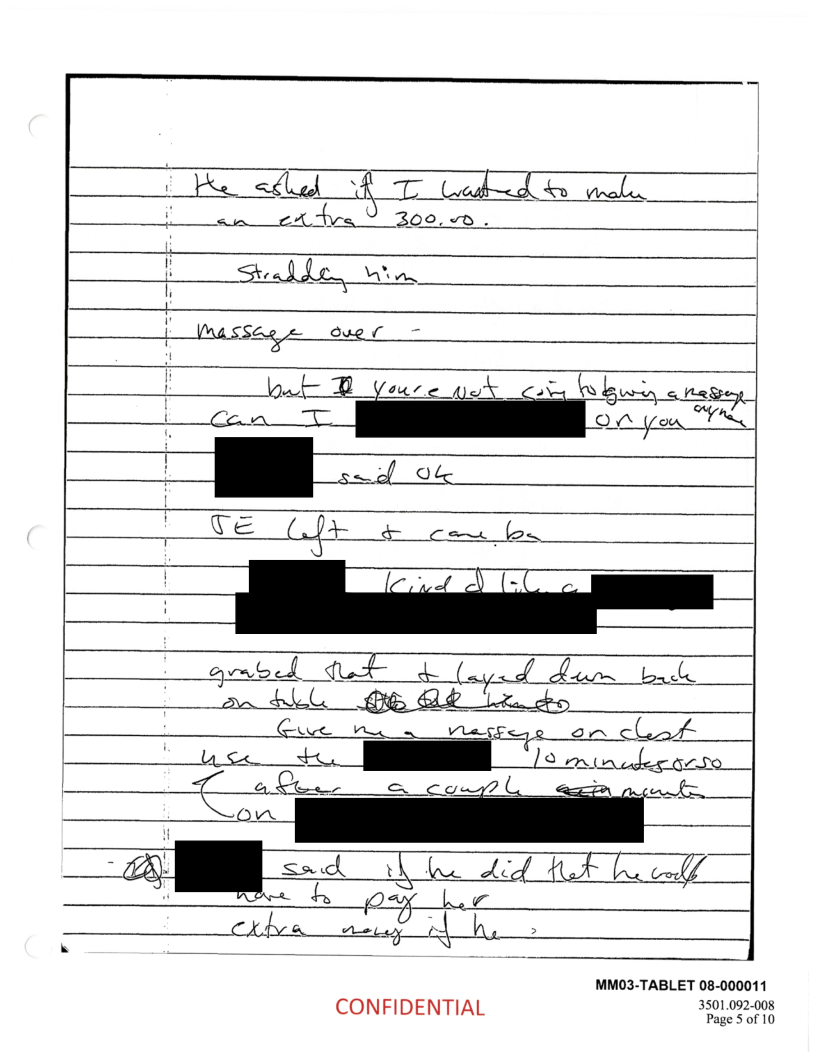 He asked if I wanted to make
an extra 300.00.
Straddling him
massage over -
but you're not going to giving a massage
anymore
can I on you
said ok
JE left & came ba
kind of like a
grabed that & layed down back
on table
Give me a massage on chest
use the 10 minutes or so
after a couple minutes
on
said if he did that he would
have to pay her
extra money if he
MM03-TABLET 08-000011
CONFIDENTIAL
3501.092-008
Page 5 of 10